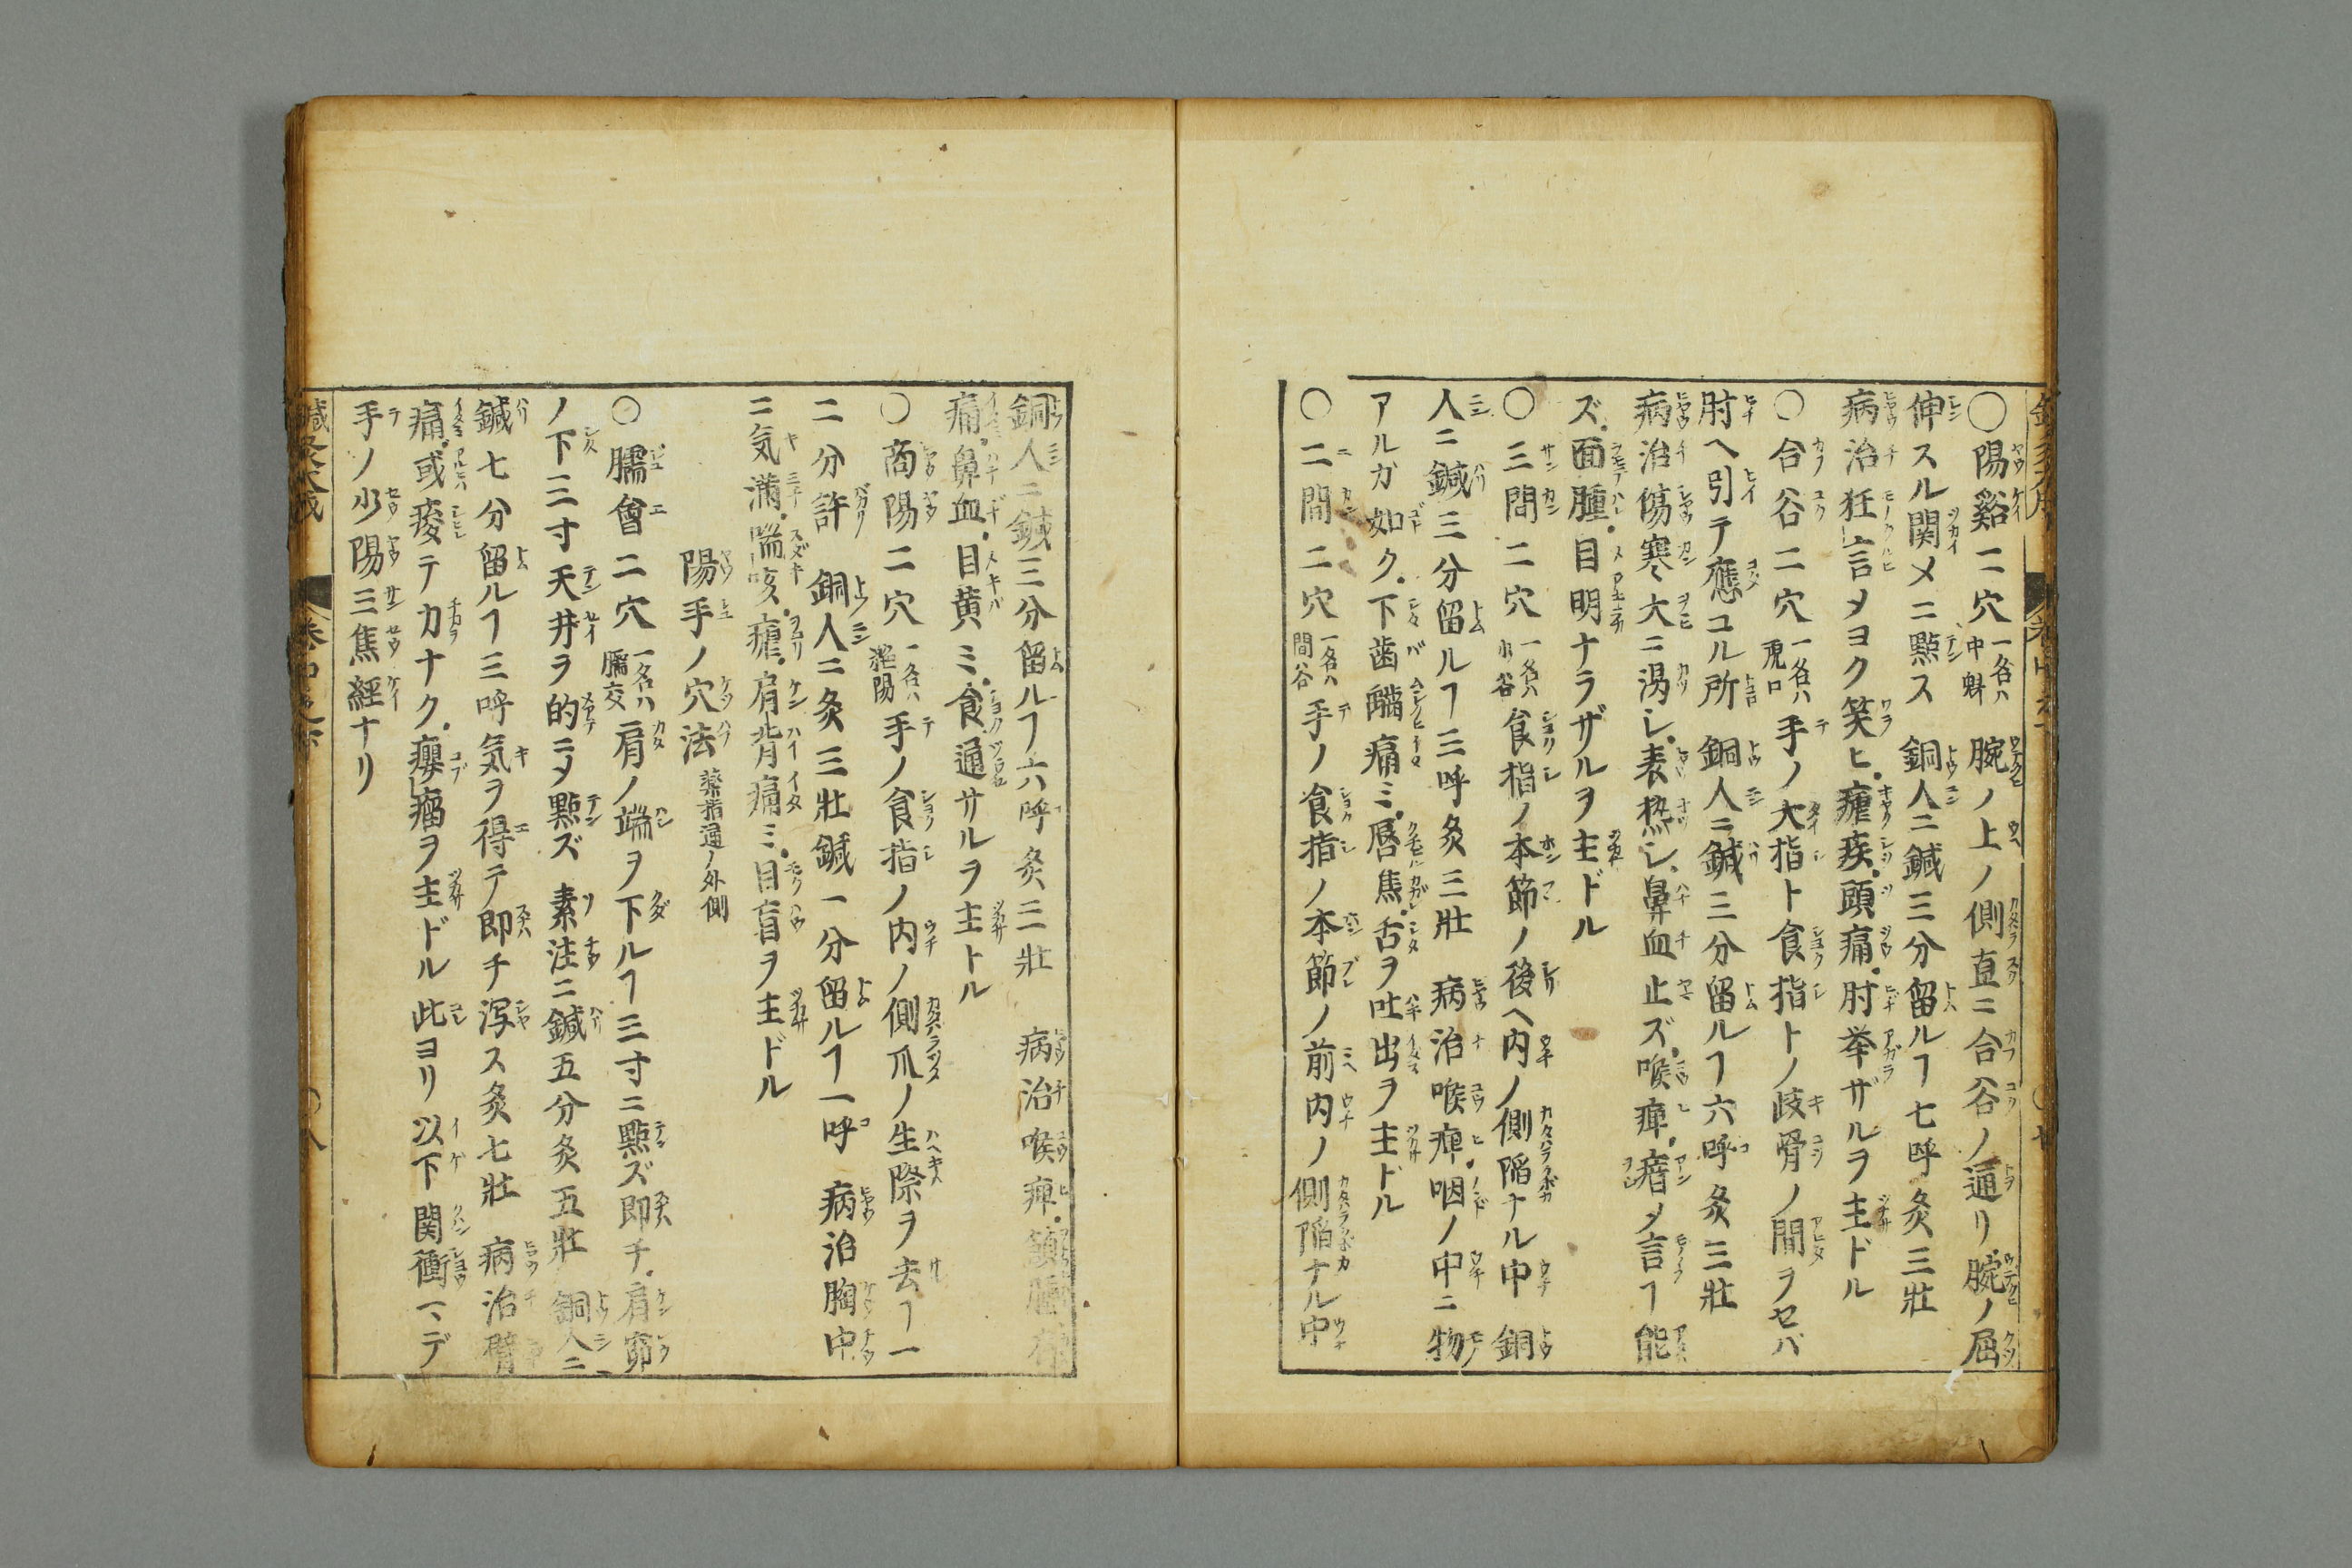 〇陽谿二穴一名ハ中魁 腕ノ上ノ側直ニ合谷ノ通リ腕ノ屈
伸スル関メニ點ス 銅人ニ鍼三分留ルヿ七呼灸三壮
病治狂言メヨク笑ヒ瘧疾頭痛肘挙ザルヲ主ドル
〇合谷二穴一名ハ虎口手ノ大指ト食指トノ歧骨ノ間ヲセバ
肘ヘ引テ應コル所 銅人ニ鍼三分留ルヿ六呼灸三壮
病治傷寒大ニ渇シ表熱シ鼻血止ズ喉痺瘖メ言ヿ能
ズ面腫目明ナラザルヲ主ドル
〇三間二穴一名ハ小谷食指ノ本節ノ後ヘ内ノ側陷ナル中 銅
人ニ鍼三分留ルヿ三呼灸三壮 病治喉痺咽ノ中ニ物
アルガ如ク下歯齲痛ミ唇焦舌ヲ吐出ヲ主ドル
〇二間二穴一名ハ間谷手ノ食指ノ本節ノ前内ノ側陷ナル中
銅人ニ鍼三分留ルヿ六呼灸三壮 病治喉痺頷腫
痛鼻血目黄ミ食通サルヲ主トル
〇商陽二穴一名ハ絶陽手ノ食指ノ内ノ側爪ノ生際ヲ去ヿ一
二分許 銅人ニ灸三壮鍼一分留ルヿ一呼 病治胸中
ニ気満喘咳瘧肩背痛ミ目盲ヲ主ドル
陽手ノ穴法薬指通ノ外側
〇臑會二穴一名ハ臑交肩ノ端ヲ下ルヿ三寸ニ點ズ即チ肩
ノ下三寸天井ヲ的ニメ點ズ 素注ニ鍼五分灸五壮 銅人ニ
鍼七分留ルヿ三呼気ヲ得テ即チ瀉ス灸七壮 病治臂
痛或痠テカナク癭瘤ヲ主ドル此ヨリ以下関衝マデ
手ノ少陽三焦経ナリ
鍼灸大成 巻中之下 〇八